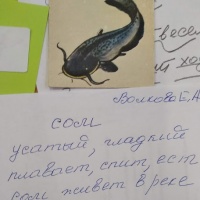 весен
Волкова Е.А
сом
усатый, гладкий
плавает, спит, ест
Сом живет в реке